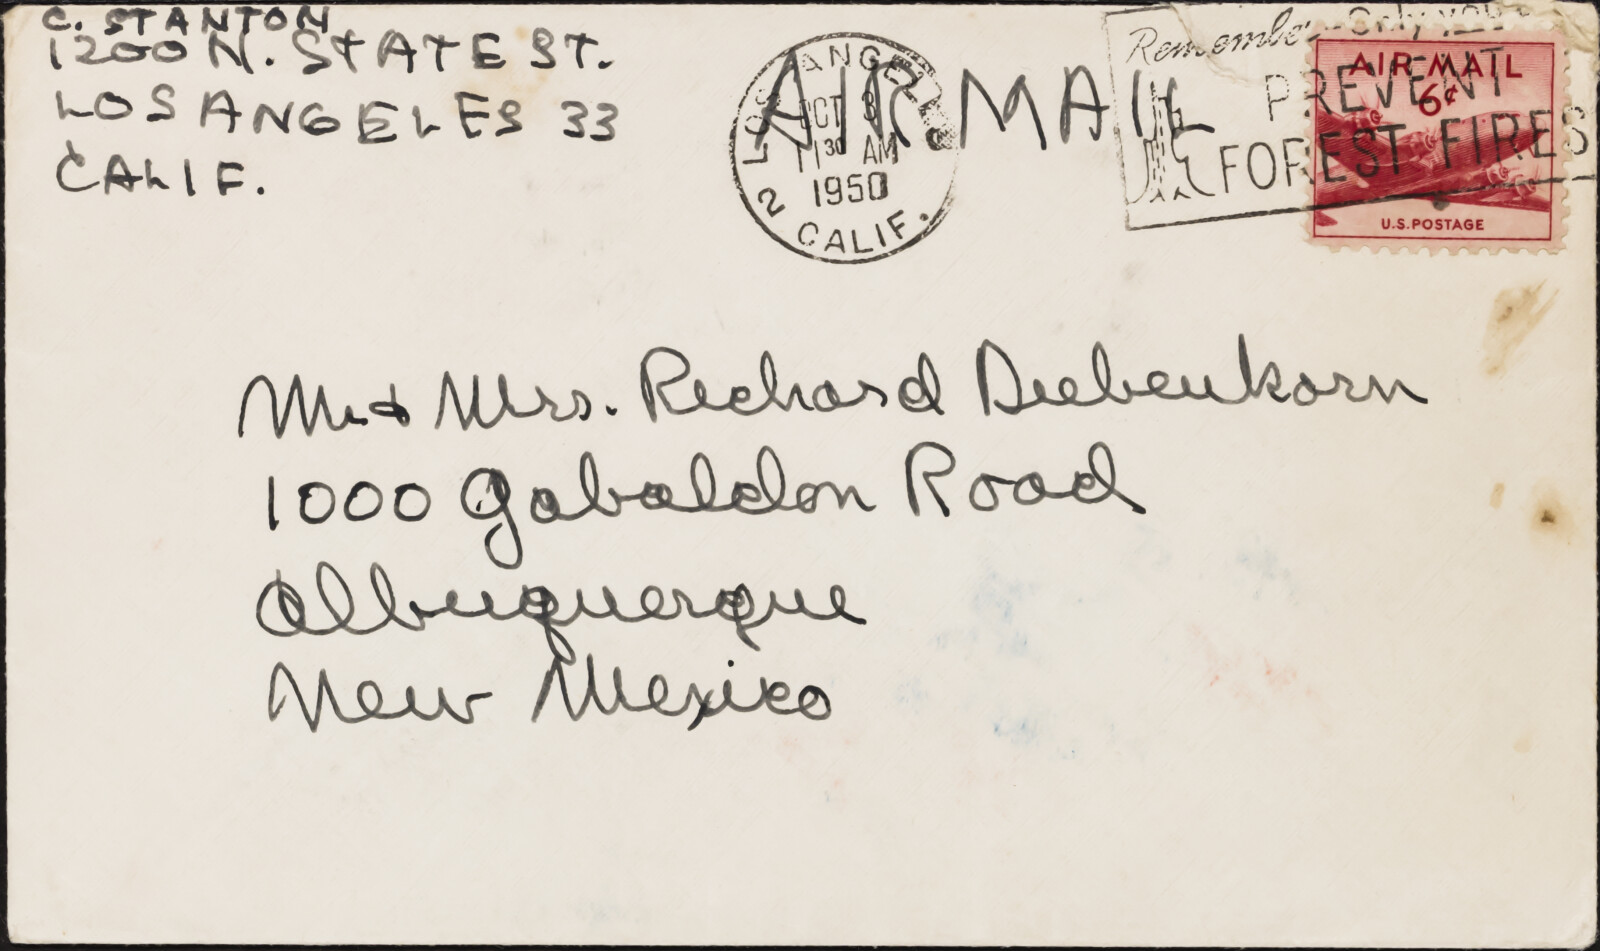 C. STANTON
1200 N. STATE ST.
LOS ANGELES 33
CALIF.
AIR MAIL
LOS ANGELES
OCT 3
11 30 AM
1950
2 CALIF.
Remember - Only you
PREVENT
FOREST FIRES
AIR MAIL
6¢
U.S. POSTAGE
Mr. & Mrs. Richard Diebenkorn
1000 Gabaldon Road
Albuquerque
New Mexico